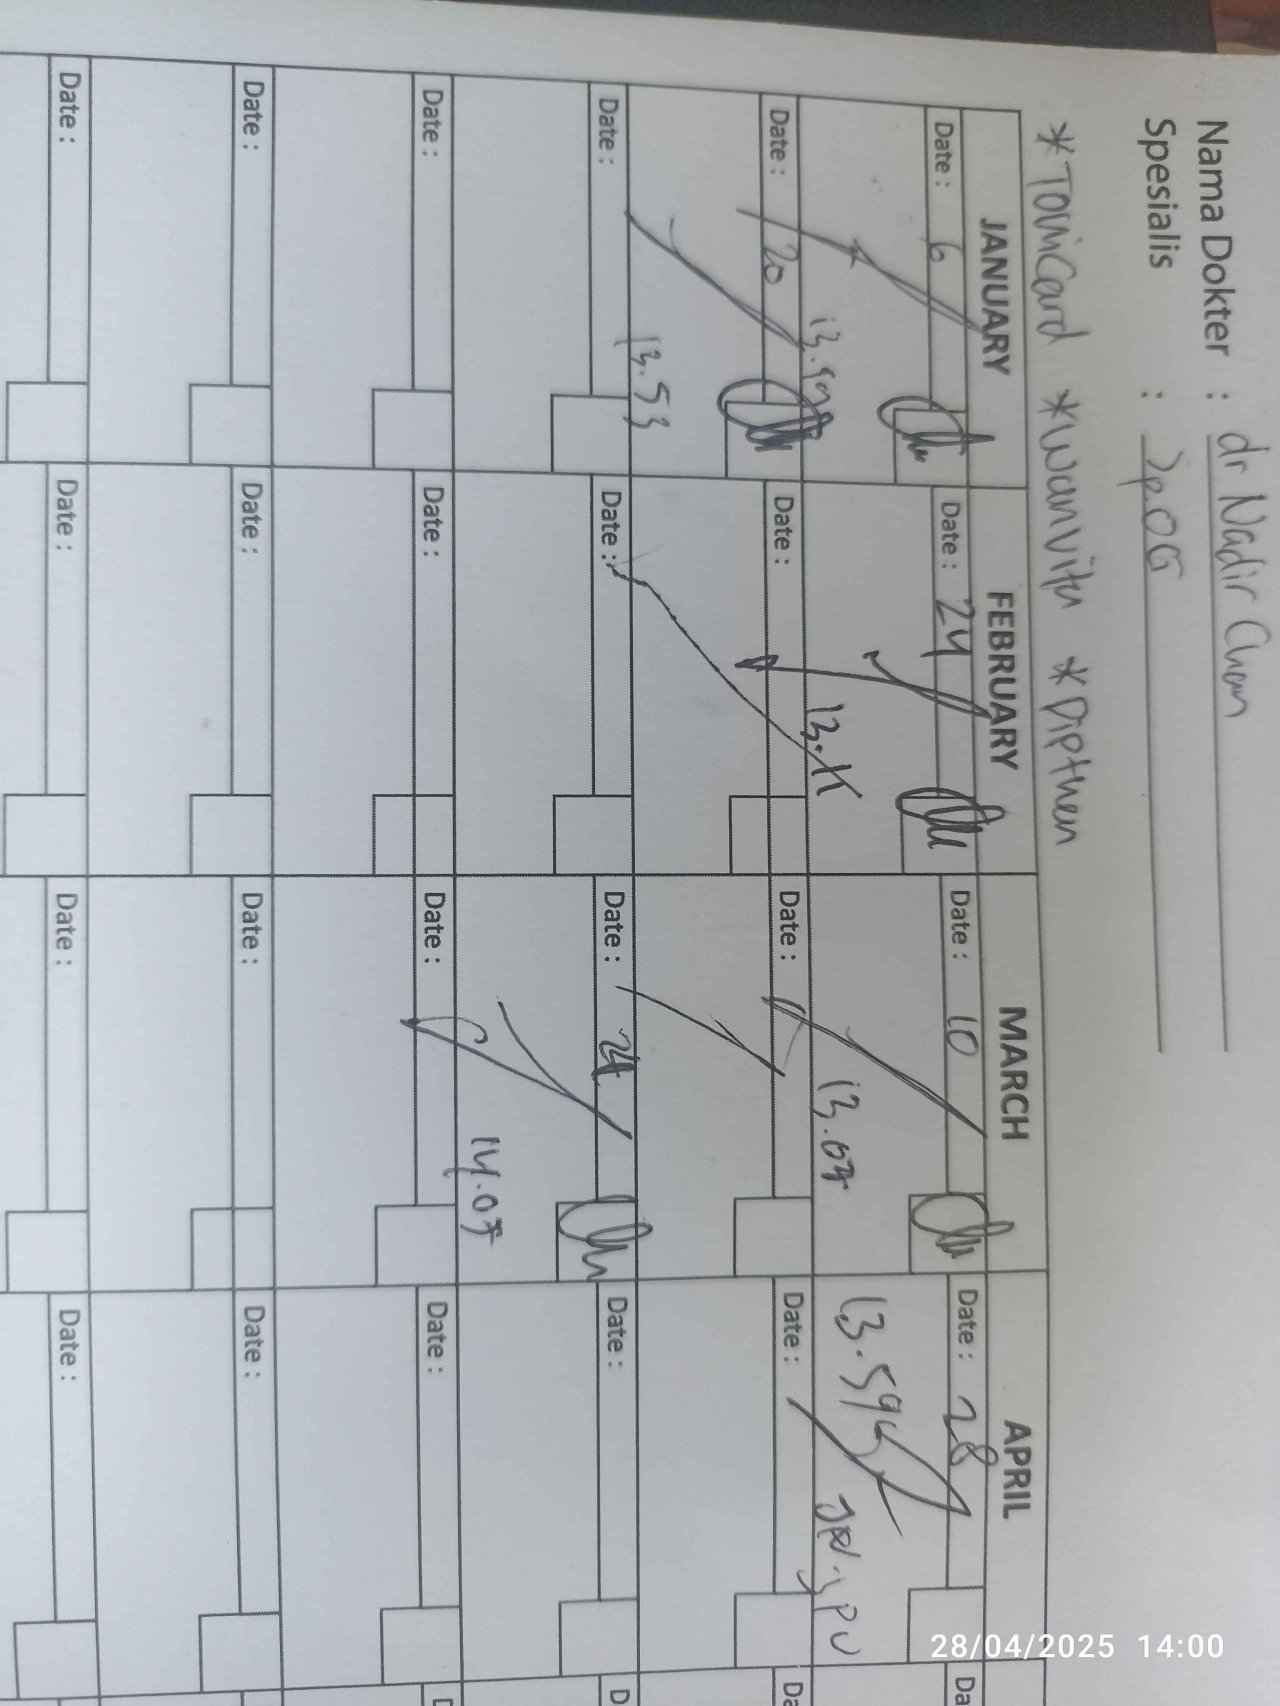 Nama Dokter : dr Nadir Chan
Spesialis : Sp.OG
*TomCard *Wanvitu *Dipthen
JANUARY FEBRUARY MARCH APRIL
Date : 6 Date : 24 Date : 10 Date : 28 Da
13.03 13.59
Date : 20 Date : Date : Date : Da
13.53
Date : Date : Date : 24 Date : D
14.07
Date : Date : Date : Date : D
Date : Date : Date : Date :
Date : Date : Date : Date :
28/04/2025 14:00